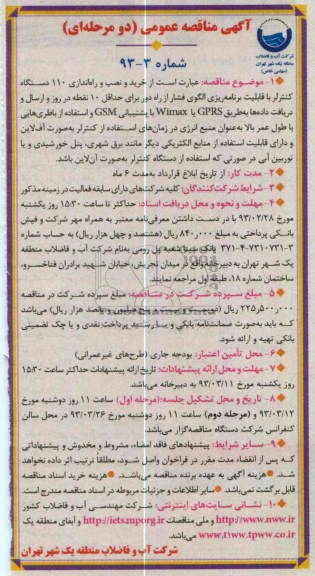 آگهی مناقصه عمومی (دو مرحله‌ای)
شماره ۳-۹۳
شرکت آب و فاضلاب
منطقه یک شهر تهران
(سهامی خاص)
۱- موضوع مناقصه: عبارت است از خرید و نصب و راه‌اندازی ۱۱۰ دستگاه
کنترلر با قابلیت برنامه‌ریزی الگوی فشار از راه دور برای حداقل ۱۰ نقطه در روز و ارسال و
دریافت داده‌ها به‌طریق GPRS یا Wimax با پشتیبانی GSM و استفاده از باطری‌هایی
با طول عمر بالا به‌عنوان منبع انرژی در زمان‌های استفاده از کنترلر به‌صورت آف‌لاین
و دارای قابلیت استفاده از منابع الکتریکی دیگر مانند برق شهری، پنل خورشیدی و یا
توربین آبی در صورتی که استفاده از دستگاه کنترلر به‌صورت آن‌لاین باشد.
۲- مدت کار: از تاریخ ابلاغ قرارداد به‌مدت ۶ ماه
۳- شرایط شرکت‌کنندگان: کلیه شرکت‌های دارای سابقه فعالیت در زمینه مذکور
۴- مهلت و نحوه و محل دریافت اسناد: حداکثر تا ساعت ۱۵:۳۰ روز یکشنبه
مورخ ۹۳/۰۲/۲۸ با در دست داشتن معرفی‌نامه معتبر به همراه مهر شرکت و فیش
بانکی پرداختی به مبلغ ۸۴۰,۰۰۰ ریال (هشتصد و چهل هزار ریال) به حساب شماره
۳۷۱-۴-۷۳۱-۷۳۱-۳ بانک شعبه پل رومی به‌نام شرکت آب و فاضلاب منطقه
یک شهر تهران به دبیرخانه واقع در میدان تجریش، خیابان شهید برادران فناخسرو،
ساختمان شماره ۱۸، طبقه اول مراجعه نمایند.
۵- مبلغ سپرده شرکت در مناقصه: مبلغ سپرده شرکت در مناقصه
۲۲۵,۵۰۰,۰۰۰ ریال (دویست و بیست و پنج میلیون و پانصد هزار ریال) می‌باشد
که باید به‌صورت ضمانت‌نامه بانکی و یا رسید پرداخت نقدی و یا چک تضمینی
بانکی تهیه و ارائه شود.
۶- محل تأمین اعتبار: بودجه جاری (طرح‌های غیرعمرانی)
۷- مهلت و محل ارائه پیشنهادات: تاریخ ارائه پیشنهادات حداکثر ساعت ۱۵:۳۰
روز یکشنبه مورخ ۹۳/۰۳/۱۱ به دبیرخانه می‌باشد.
۸- تاریخ و محل تشکیل جلسه: (مرحله اول) ساعت ۱۱ روز دوشنبه مورخ
۹۳/۰۳/۱۲ و (مرحله دوم) ساعت ۱۱ روز دوشنبه مورخ ۹۳/۰۳/۲۶ در محل سالن
کنفرانس شرکت دستگاه مناقصه‌گزار می‌باشد.
۹- سایر شرایط: پیشنهادهای فاقد امضاء، مشروط و مخدوش و پیشنهاداتی
که پس از انقضاء مدت مقرر در فراخوان واصل شود، مطلقا ترتیب اثر داده نخواهد
شد. هزینه آگهی به عهده برنده مناقصه می‌باشد. هزینه خرید اسناد مناقصه
قابل برگشت نمی‌باشد. سایر اطلاعات و جزئیات مربوطه در اسناد مناقصه مندرج است.
۱۰- نشانی سایت‌های اینترنتی: شرکت مهندسی آب و فاضلاب کشور
http://www.nww.ir و ملی مناقصات http://iets.mporg.ir و آبفای منطقه یک
www.t1ww.tpww.co.ir می‌باشد.
شرکت آب و فاضلاب منطقه یک شهر تهران